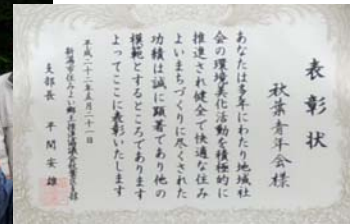 表彰状
秋葉青年会様
あなたは多年にわたり地域社
会の環境美化活動を積極的に
推進され健全で快適な住み
よいまちづくりに尽くされた
功績は誠に顕著であり他の
模範とするところであります
よってここに表彰いたします
平成二十二年五月二十一日
新潟県住みよい郷土推進協議会新潟支部
支部長 平間安雄